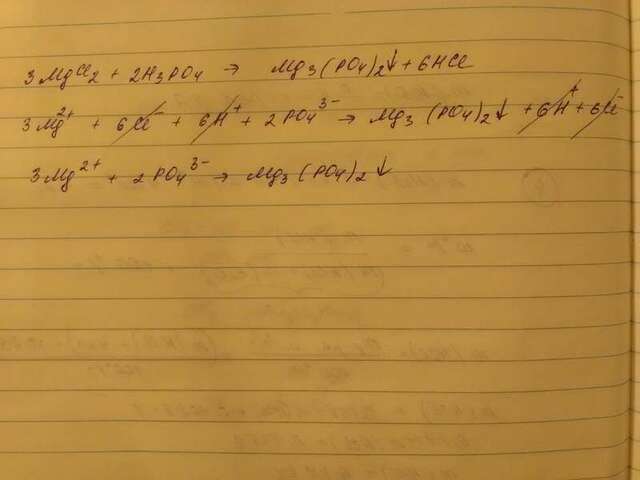 3MgCl2 + 2H3PO4 → Mg3(PO4)2↓ + 6HCl
3Mg²⁺ + 6Cl⁻ + 6H⁺ + 2PO4³⁻ → Mg3(PO4)2↓ + 6H⁺ + 6Cl⁻
3Mg²⁺ + 2PO4³⁻ → Mg3(PO4)2↓